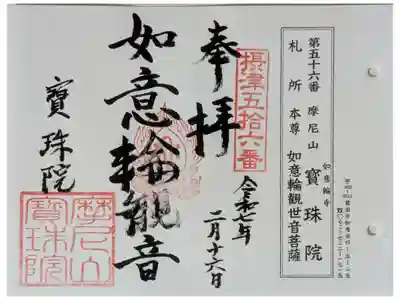 第五十六番
摩尼山 寶珠院
如意輪寺
札所本尊 如意輪観世音菩薩
奉拝
摂津五拾六番
令和七年
二月十六日
如意輪観音
寶珠院
摩尼山
寶珠院